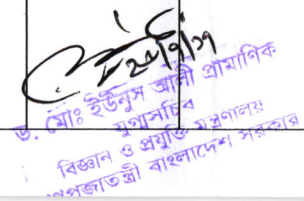 ড. মোঃ ইউনুস আলী প্রামাণিক
যুগ্মসচিব
বিজ্ঞান ও প্রযুক্তি মন্ত্রণালয়
গণপ্রজাতন্ত্রী বাংলাদেশ সরকার